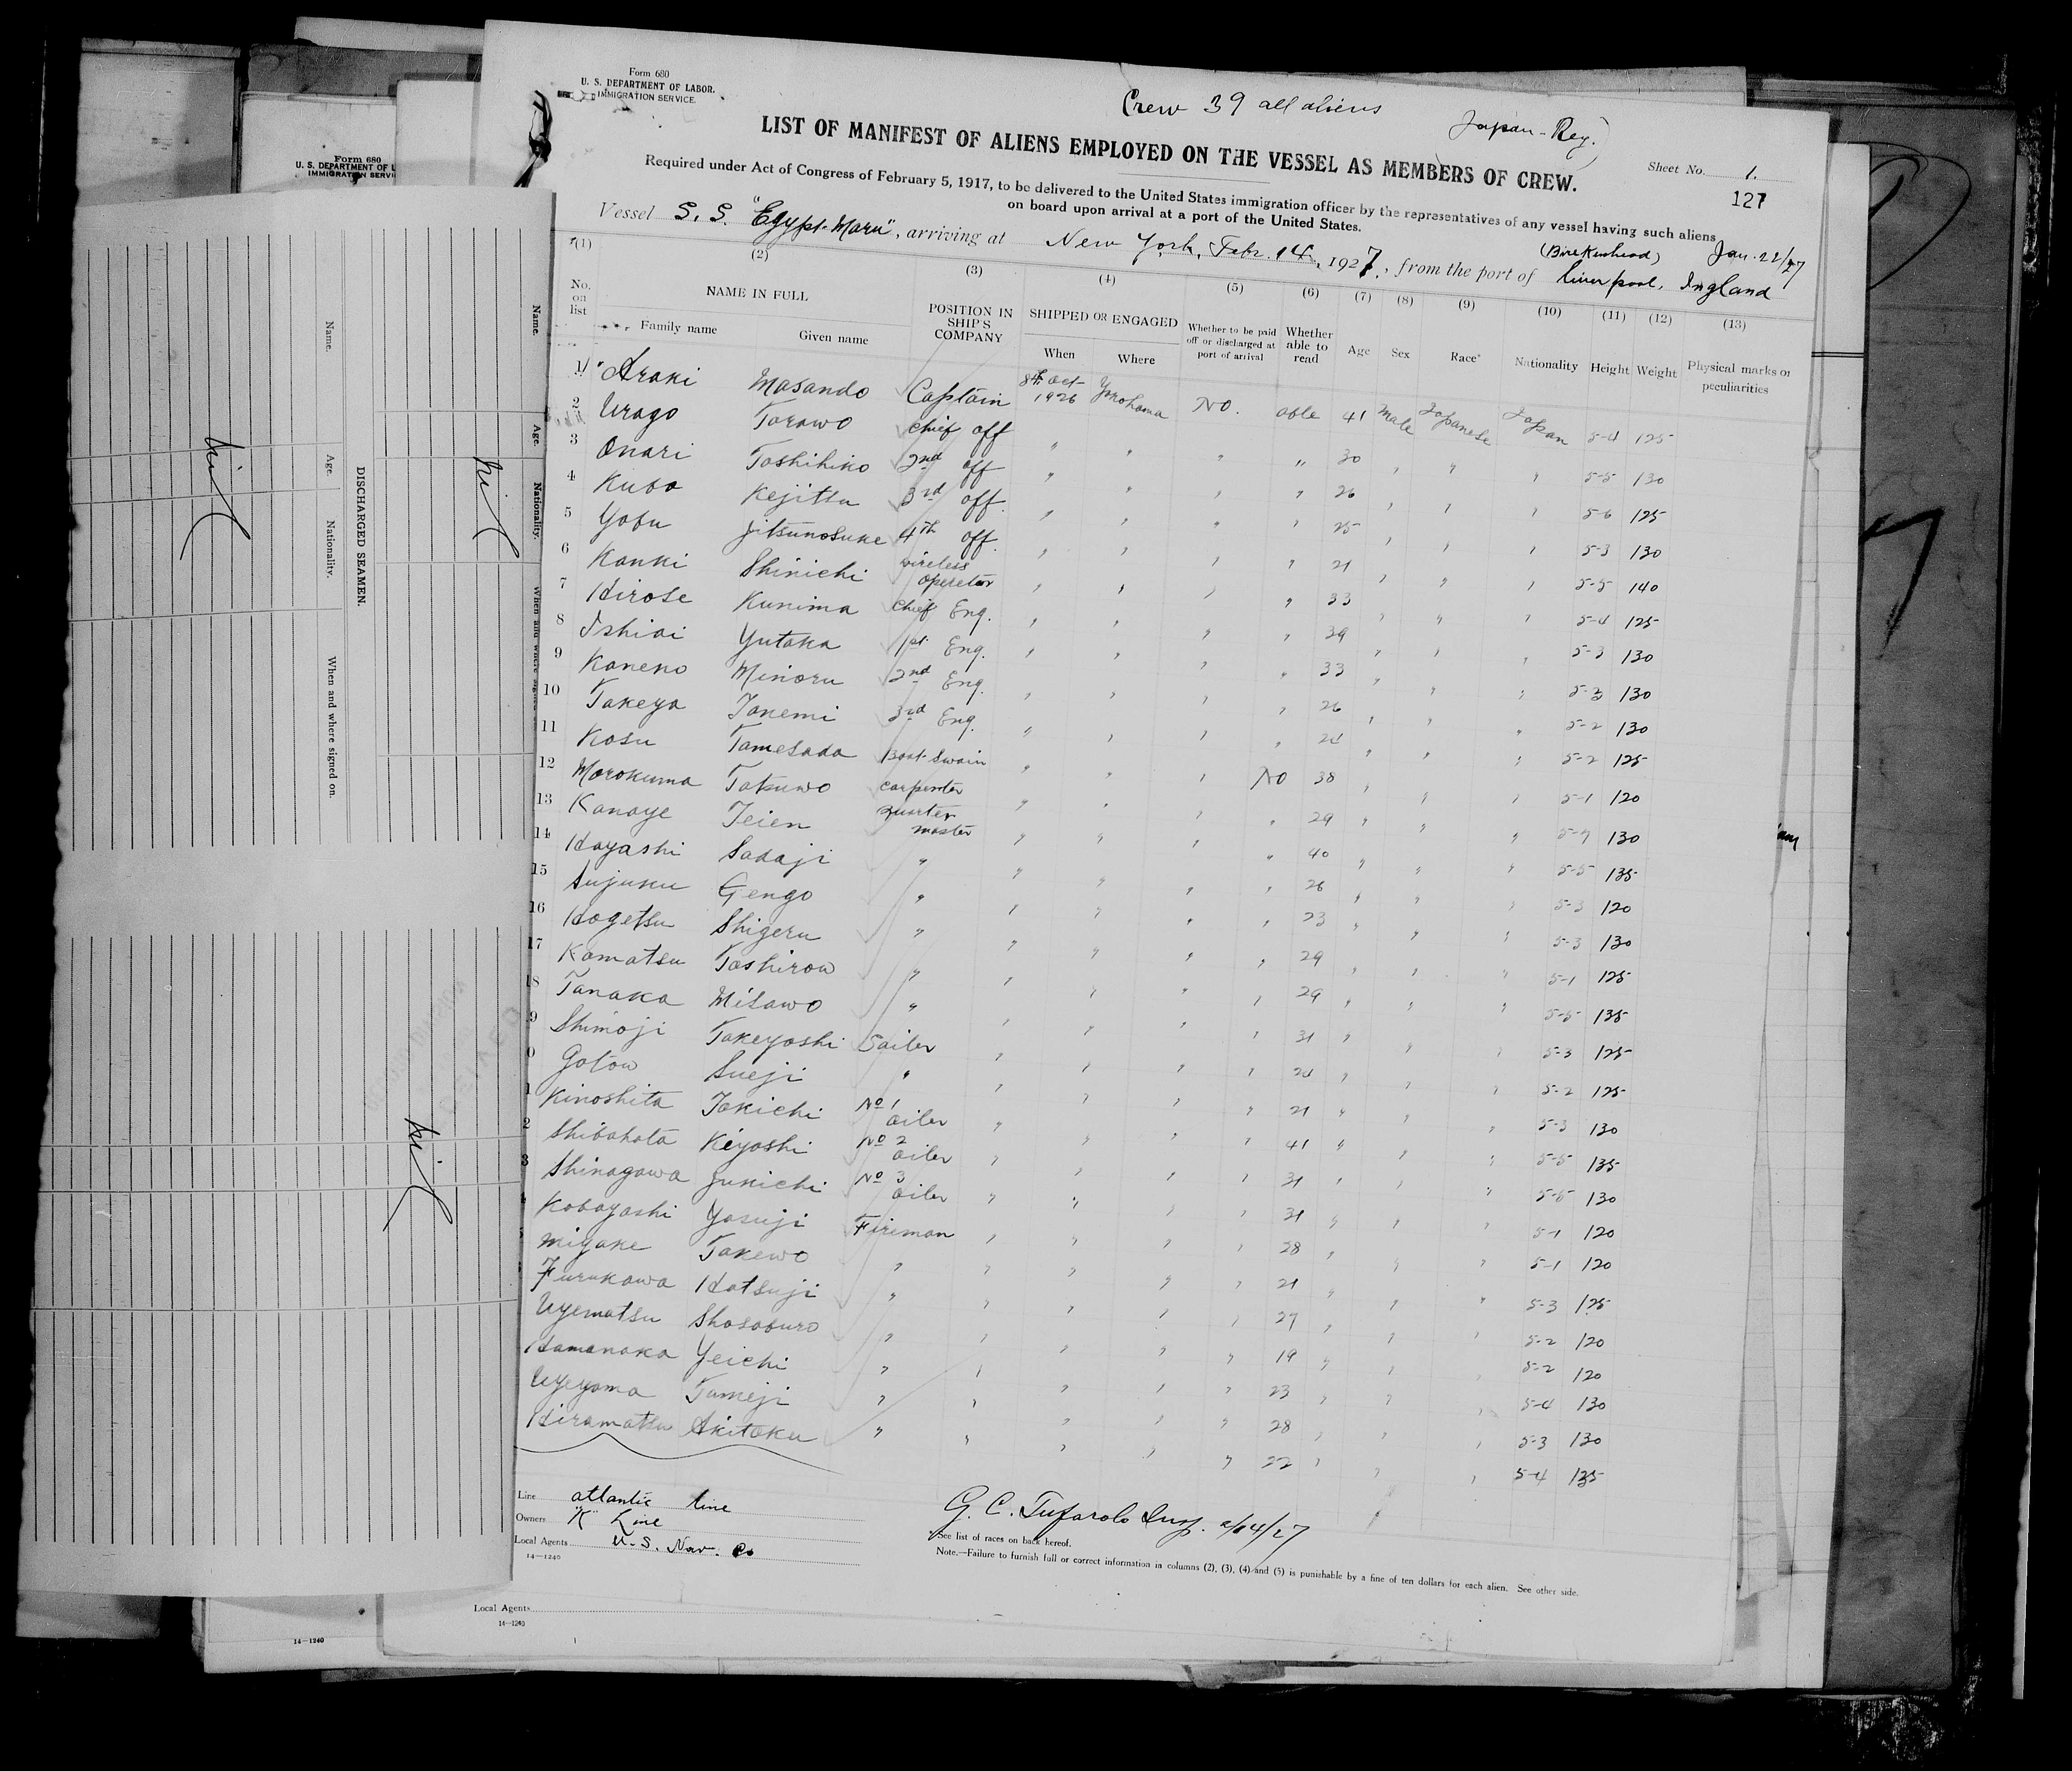 Form 680
U. S. DEPARTMENT OF LABOR.
IMMIGRATION SERVICE.
Crew 39 all aliens
Japan-Reg.
LIST OF MANIFEST OF ALIENS EMPLOYED ON THE VESSEL AS MEMBERS OF CREW.
Sheet No. 1.
127
Required under Act of Congress of February 5, 1917, to be delivered to the United States immigration officer by the representatives of any vessel having such aliens
on board upon arrival at a port of the United States.
Vessel S. S. "Egypt-Maru", arriving at New York, Febr. 14, 1927, from the port of (Birkenhead) Liverpool, England Jan. 22/27
(1) (2) (3) (4) (5) (6) (7) (8) (9) (10) (11) (12) (13)
No. on list NAME IN FULL Family name Given name POSITION IN SHIP'S COMPANY SHIPPED OR ENGAGED When Where Whether to be paid off or discharged at port of arrival Whether able to read Age Sex Race* Nationality Height Weight Physical marks or peculiarities
1 Araki Masando Captain 8th Oct 1926 Yokohama No. able 41 Male Japanese Japan 5-4 125
2 Urago Torawo chief off " " " " 30 " " " 5-5 130
3 Onari Toshihiko 2nd off " " " " 26 " " " 5-6 125
4 Kubo Kejitsu 3rd off. " " " " 25 " " " 5-3 130
5 Yobu Jitsunosuke 4th off. " " " " 21 " " " 5-5 140
6 Kanki Shinichi wireless operetor " " " " 33 " " " 5-4 125
7 Hirose Kunima chief Eng. " " " " 39 " " " 5-3 130
8 Ishiai Yutaka 1st Eng. " " " " 33 " " " 5-3 130
9 Kaneko Minoru 2nd Eng. " " " " 26 " " " 5-2 130
10 Takeya Takemi 3rd Eng. " " " " 24 " " " 5-2 125
11 Kosu Tamesada Boat-Swain " " " No 38 " " " 5-1 120
12 Morokuma Tatsuwo carpenter " " " " 29 " " " 130
13 Kanaye Teien quarter master " " " " 40 " " " 5-5 135
14 Hayashi Sadaji " " " " " 26 " " " 5-3 120
15 Sujuku Gengo " " " " " 23 " " " 5-3 130
16 Hogetsu Shigeru " " " " " 29 " " " 5-1 125
17 Komatsu Toshirow " " " " " 29 " " " 5-5 135
8 Tanaka Misawo " " " " " 31 " " " 5-3 125
9 Shimoji Takeyoshi Sailer " " " " 24 " " " 5-2 125
0 Gotow Sueji " " " " " 21 " " " 5-3 130
1 Kinoshita Tokichi No 1 oiler " " " " 41 " " " 5-5 135
2 Shibahata Kiyoshi No 2 oiler " " " " 31 " " " 5-5 130
3 Shinagawa Jukichi No 3 oiler " " " " 31 " " " 5-1 120
Kobayashi Yasuji Fireman " " " " 28 " " " 5-1 120
Miyake Takewo " " " " " 21 " " " 5-3 125
Furukawa Hatsuji " " " " " 27 " " " 5-2 120
Uyematsu Shosaburo " " " " " 19 " " " 5-2 120
Hamanaka Yeichi " " " " " 23 " " " 5-4 130
Uyeyama Tameji " " " " " 28 " " " 5-3 130
Hiramatsu Akitaku " " " " " 22 " " " 5-4 135
Line atlantic line
Owners "K" Line
Local Agents U.S. Nav. Co
14—1240
G. C. Tufarolo Insp. 2/14/27
*See list of races on back hereof.
Note.—Failure to furnish full or correct information in columns (2), (3), (4) and (5) is punishable by a fine of ten dollars for each alien. See other side.
Local Agents
14—1240
14—1240
Form 680
U. S. DEPARTMENT OF L
IMMIGRATION SERVI
DISCHARGED SEAMEN.
Name. Age. Nationality. When and where signed on.
Name. Age. Nationality. When and where signed on.
Nil
Nil
Nil